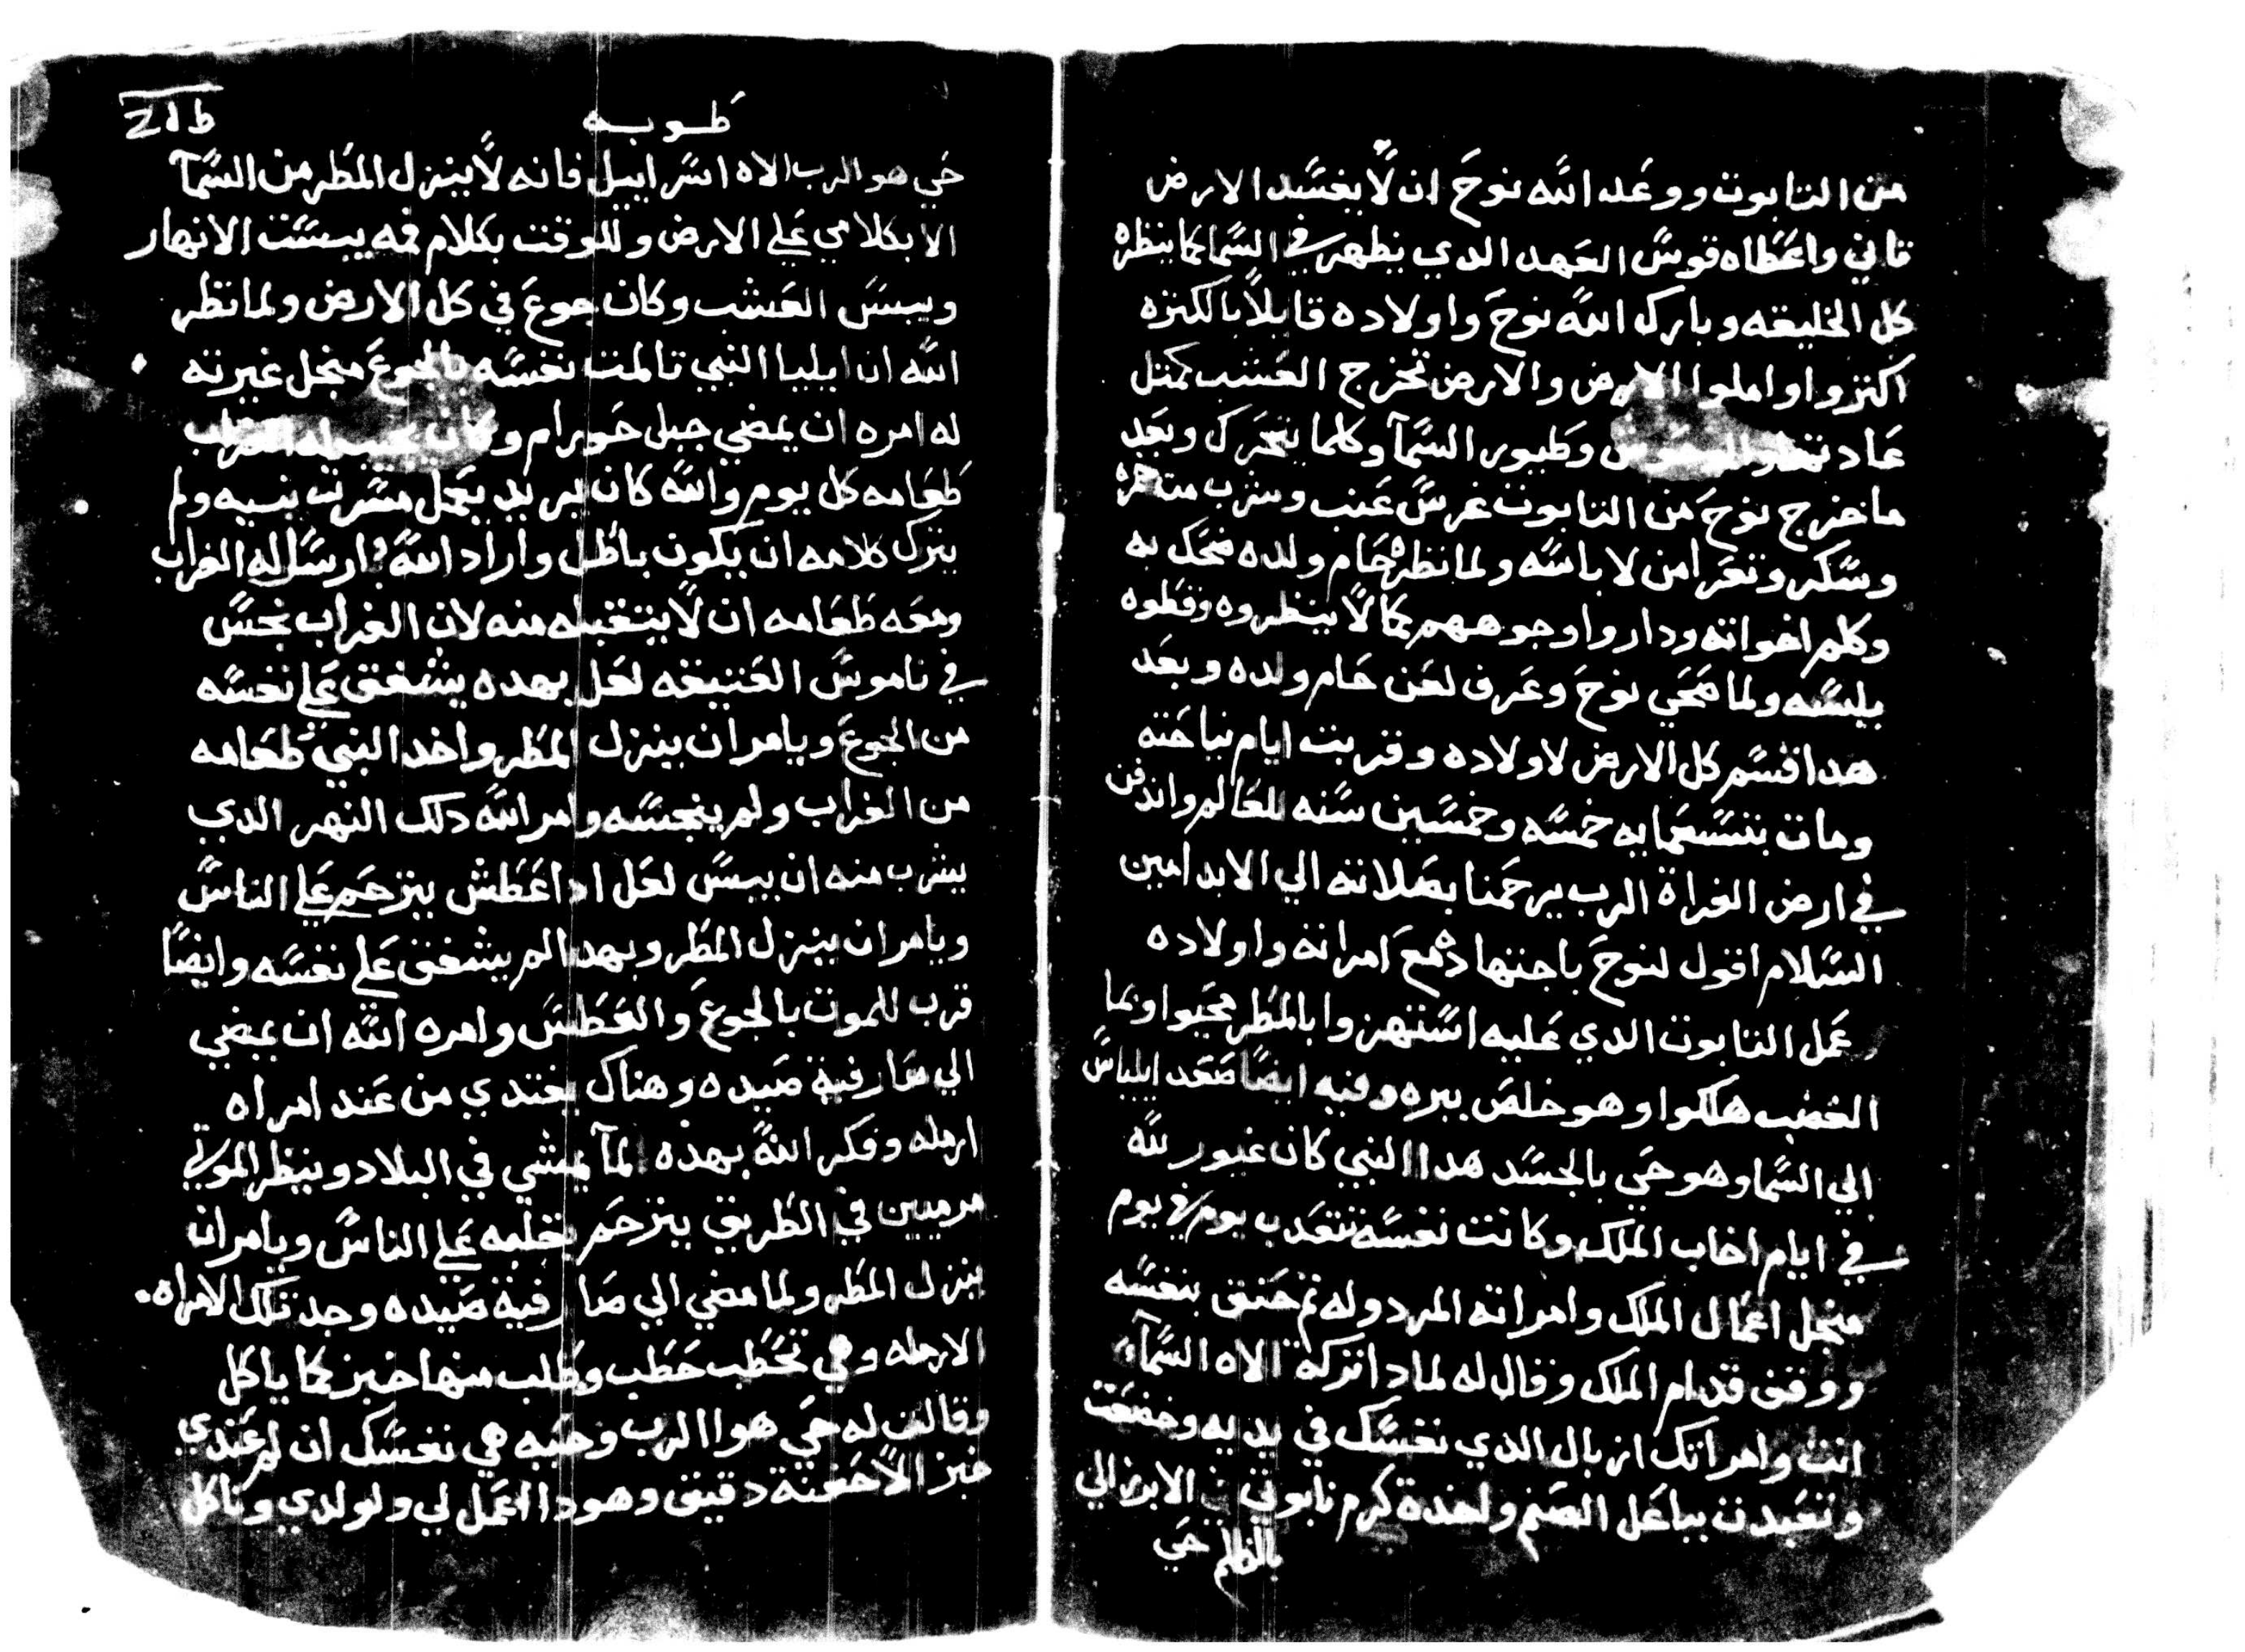 من التابوت ووعد الله نوح ان لا يفسد الارض
تاني واعطاه قوس العهد الدي يظهر في السما كما ينظره
كل الخليقه وبارك الله نوح واولاده قايلا بالكتره
اكتروا واملوا الارض والارض تخرج العشب كمتل
عادتها وطيور السمآ وكلما يتحرك وبعد
ما خرج نوح من التابوت غرس عنب وشرب من
وسكر وتعرا من لاباسه ولما نظره حام ولده ضحك به
وكلم اخواته وداروا وجوههم كما لا ينظروه وغطوه
بلبسه ولما صحي نوح وعرف لعن حام ولده وبعد
هدا قسم كل الارض لاولاده وقربت ايام نياحته
ومات بتسعمايه خمسه وخمسين سنه للعالم واندفن
في ارض الفراة الرب يرحمنا بصلاته الي الابد امين
السلام اقول لنوح باجتهاده مع امراته واولاده
عمل التابوت الدي عليه استهزوا بالمطر محيوا وبما
الغضب هلكوا وهو خلص ببره وفيه ايضا صعد ايلياس
الي السما وهو حي بالجسد هدا النبي كان غيور لله
في ايام اخاب الملك وكانت نفسه تتعدب يوم في يوم
منجل اعمال الملك وامراته المردوله تم حنق بنفسه
ووقف قدام الملك وقال له لمادا تركة الاه السمآء
انت وامراتك ازبال الدي نفسك في يديه وخضعت
وتعبدت بباعل الصنم ولخدة كرم نابوتي الابزرالي
بالظلم حي
طوبه
ط ١٢
حي هو الرب الاه اسراييل فانه لا ينزل المطر من السمآ
الا بكلامي علي الارض وللوقت بكلام فمه يبست الانهار
ويبس العشب وكان جوع في كل الارض ولما نظر
الله ان ايليا النبي تالمت نفسه بالجوع منجل غيرته
له امره ان يمضي جبل حوريام وكان يجيب له الغراب
طعامه كل يوم والله كان يريد يعمل مسرت نبيه ولم
يترك كلامه ان يكون باطل واراد الله ارسل له الغراب
ومعه طعامه ان لا يتقبله منه لان الغراب نجس
في ناموس العتيقه لعل بهده يشفق علي نفسه
من الجوع ويامر ان ينزل المطر واخد النبي طعامه
من الغراب ولم ينجسه وامر الله دلك النهر الدي
يشرب منه ان يبس لعل ادا عطش يترحم علي الناس
ويامر ان ينزل المطر وبهدا لم يشفق علي نفسه وايضا
قرب للموت بالجوع والعطش وامره الله ان يمضي
الي صارفية صيده وهناك يغتدي من عند امراه
ارمله وفكر الله بهده لمآ يمشي في البلاد وينظر الموتي
مرميين في الطريق يترحم بقلبه علي الناس ويامر ان
ينزل المطر ولما مضي الي صارفية صيده وجد تلك الامراه
الارمله وهي تحطب حطب وطلب منها خبز كما ياكل
وقالت له حي هوا الرب وحيه هي نفسك ان لم عندي
خبز الا حفنة دقيق وهودا اعمل لي ولولدي وناكل